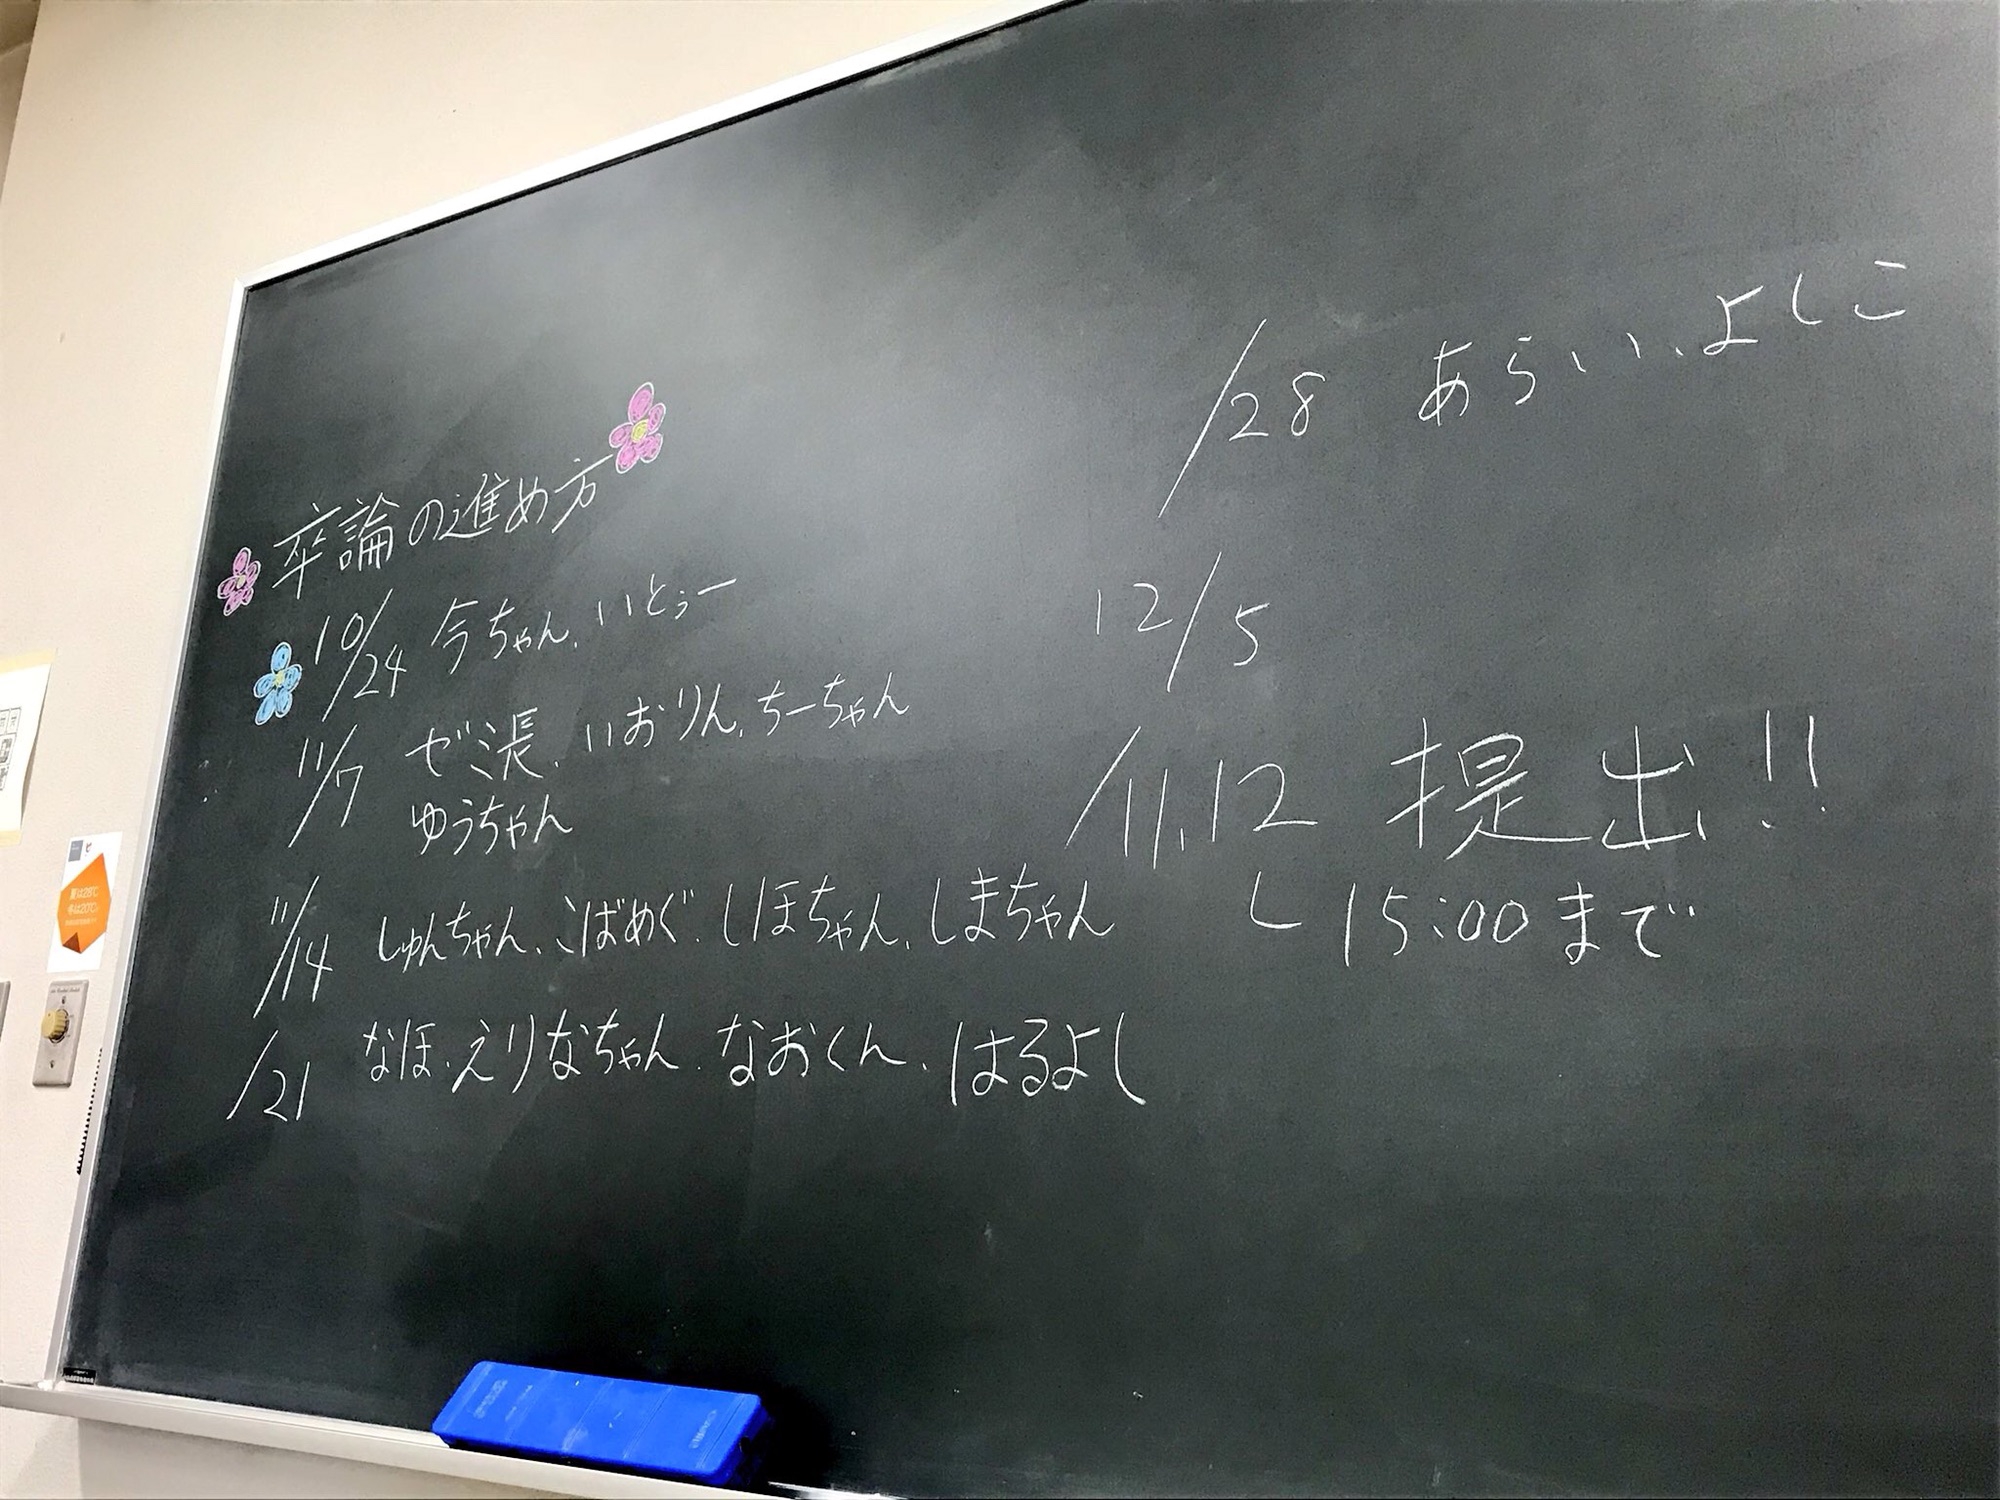 卒論の進め方
10/24 今ちゃん、いとぅー
11/7 ゼミ長、いおりん、ちーちゃん
ゆうちゃん
11/14 しゅんちゃん、こばめぐ、しほちゃん、しまちゃん
/21 なほ、えりなちゃん、なおくん、はるよし
/28 あらいい、よしこ
12/5
/11,12 提出!!
15:00まで
夏は28℃
冬は20℃